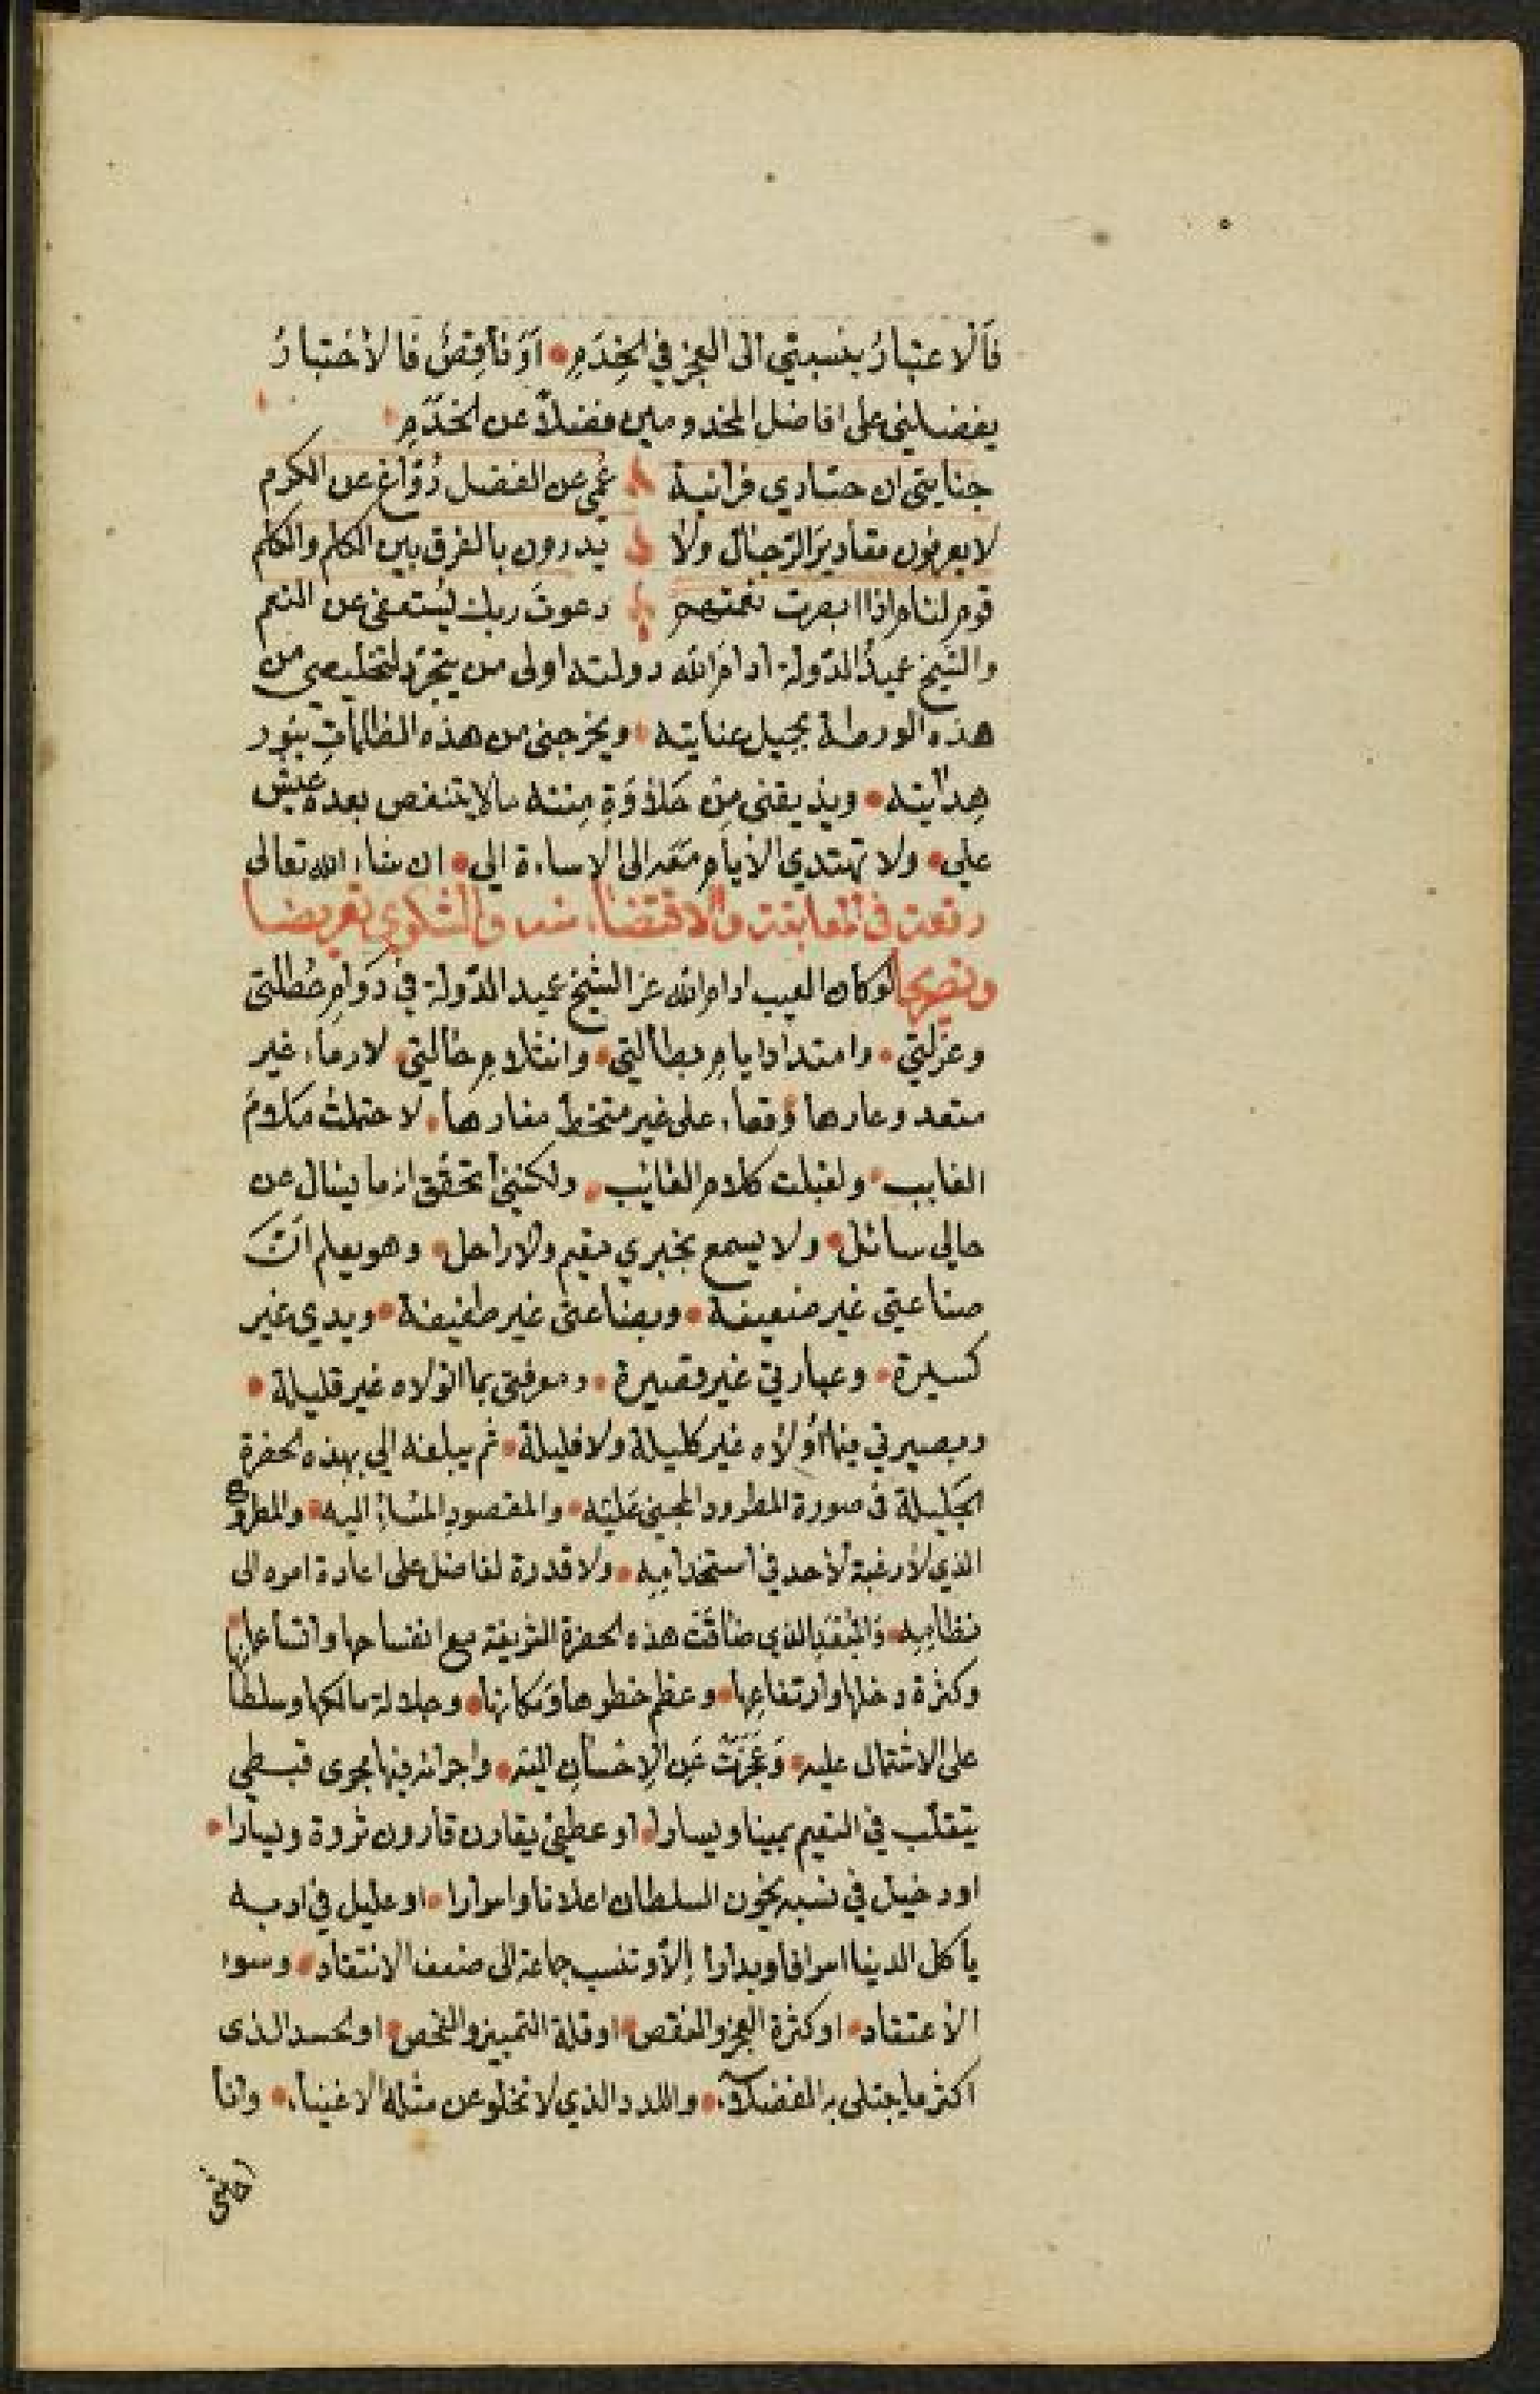 فالاعتبار ينسبتي الى العجز في الخدم او ناقص فالاختبار
يفضلني على افاضل المخدومين فضلاً عن الخدم
جنايتي ان حسادي عمي عن الفضل زُوّاغ عن الكرم
لا يعرفون مقادير الرجال ولا يدرون بالفرق بين الكلم والكلم
قوم لئام اذا ابصرت نعمتهم دعوت ربك ليستعفى عن النعم
والشيخ عميد الدولة ادام الله دولته اولى من يتجرد لتخليصي من
هذه الورطة بجميل عنايته ويخرجني من هذه الظلمات بنور
هدايته ويذيقني من حلاوة مننه مالا يتنغص بعده عيش
علي ولا تهتدي الايام معه الى الاساءة الي ان شاء الله تعالى
رقعة في المعاتبة والاقتضاء منه والشكوى تعريضا
وتصريحا لو كان العيب ادام الله عز الشيخ عميد الدولة في دوام عطلتي
وعزلتي وامتداد ايام بطالتي وانثلام حالتي لازما غير
متعد وعارها وقعا على غير متخط مغارها لاحتملت ملام
العايب ولقبلت كلام الغايب ولكنني اتحقق انه ما يسال عن
حالي سائل ولا يسمع بخبري مقيم ولا راحل وهو يعلم ان
صناعتي غير ضعيفة وبضاعتي غير طفيفة ويدي غير
كسيرة وعبارتي غير قصيرة ومعرفتي بما اتولاه غير قليلة
وبصيرتي فيما أولاه غير كليلة ولا فليلة ثم يبلغه اني بهذه الحضرة
الجليلة في صورة المطرود المجني عليه والمقصود المشار اليه والمطروح
الذي لا رغبة لاحد في استخدامه ولا قدرة لفاضل على اعادة امره الى
نظامه والمبعد الذي ضاقت هذه الحضرة الشريفة مع انفساحها واتساعها
وكثرة دخلها وارتفاعها وعظم خطرها ومكانها وجلالة مالكها وسلطانها
على الاشتمال عليه وعجزت عن الاحسان اليه واجرائه فيها مجرى قبطي
يتقلب في النعيم يمينا ويسارا او عطيفي يقارن قارون ثروة ويسارا
او دخيل في نسبه يخون السلطان اعلانا واسرارا او عليل في ادبه
ياكل الدنيا اسرافا وبدارا الا وتنسب جماعة الى ضعف الانتقاد وسوء
الاعتقاد او كثرة العجز والنقص او قلة التمييز والفحص او الحسد الذي
اكثر ما يبتلى به الفضلاء واللدد الذي لا تخلو عن مثله الاغنياء وانا